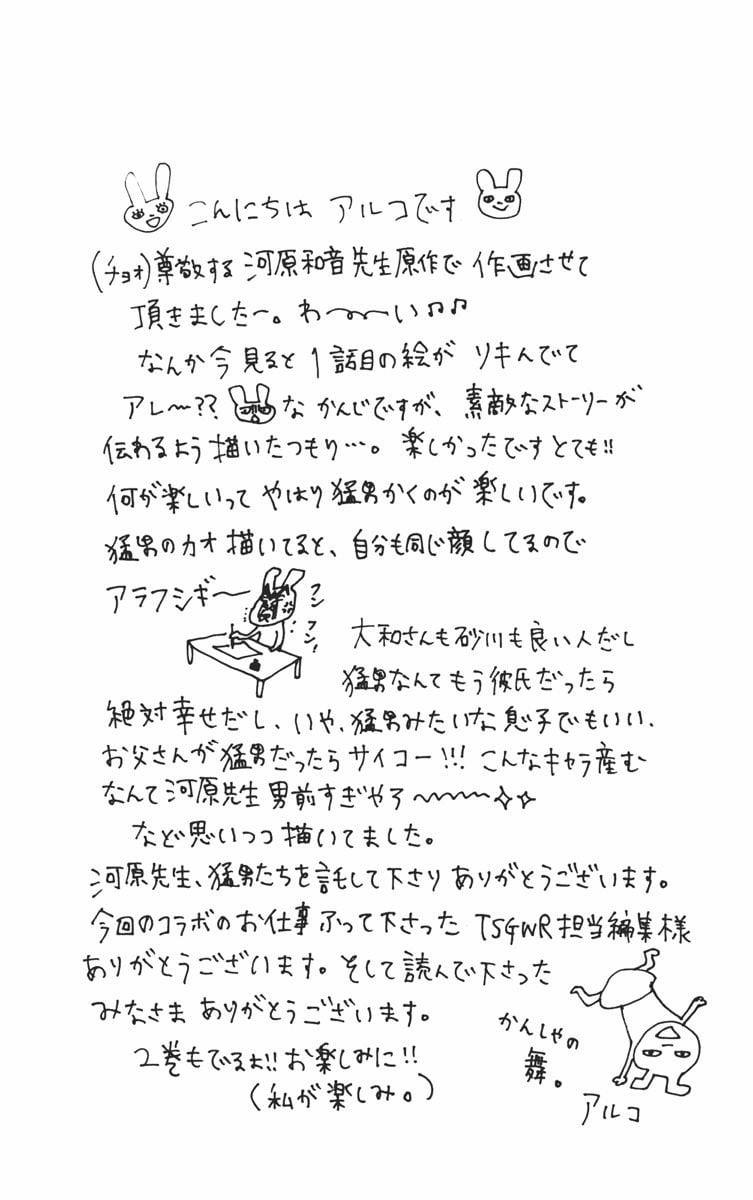 こんにちは アルコです
(チョオ)尊敬する 河原和音先生原作で 作画させて
頂きました〜。わ〜〜い♪♪
なんか今見ると 1話目の絵が リキんでて
アレ〜?? な かんじですが、素敵なストーリーが
伝わるよう描いたつもり…。楽しかったですとても!!
何が楽しいって やはり猛男かくのが 楽しいです。
猛男のカオ描いてると、自分も同じ顔してるので
アラフシギ〜
フン
フン!
大和さんも砂川も良い人だし
猛男なんてもう彼氏だったら
絶対幸せだし、いや、猛男みたいな息子でもいい、
お父さんが猛男だったらサイコー!!! こんなキャラ産む
なんて河原先生男前すぎやろ〜〜〜〜✧✧
など思いつつ描いてました。
河原先生、猛男たちを託して下さり ありがとうございます。
今回のコラボのお仕事ふって下さった TSGWR担当編集様
ありがとうございます。そして読んで下さった
みなさま ありがとうございます。
2巻もでるよ!! お楽しみに!!
(私が楽しみ。)
かんしゃの
舞。
アルコ